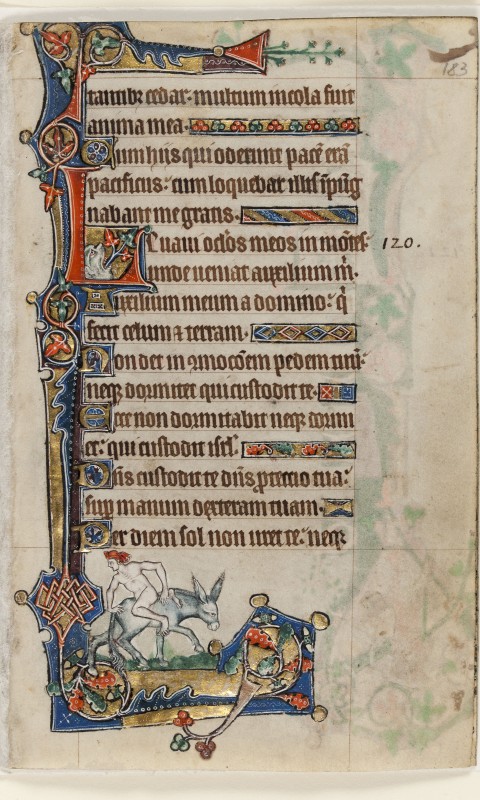 183
tantibus cedar· multum incola fuit
anima mea·
Cum hiis qui oderunt pacē erā
pacificus: cum loquebar illis īpug
nabant me gratis·
Leuaui oc̄los meos in mōtes·
120.
unde ueniat auxilium m̄·
Auxilium meum a domino: q̄
fecit celum ⁊ terram·
Non det in ꝯmocōem pedem tuū:
neqꝫ dormitet qui custodit te·
Ecce non dormitabit neqꝫ dormi
et: qui custodit isrl̄·
Dn̄s custodit te dn̄s ꝓtectio tua:
sup manum dexteram tuam·
Per diem sol non uret te: neqꝫ